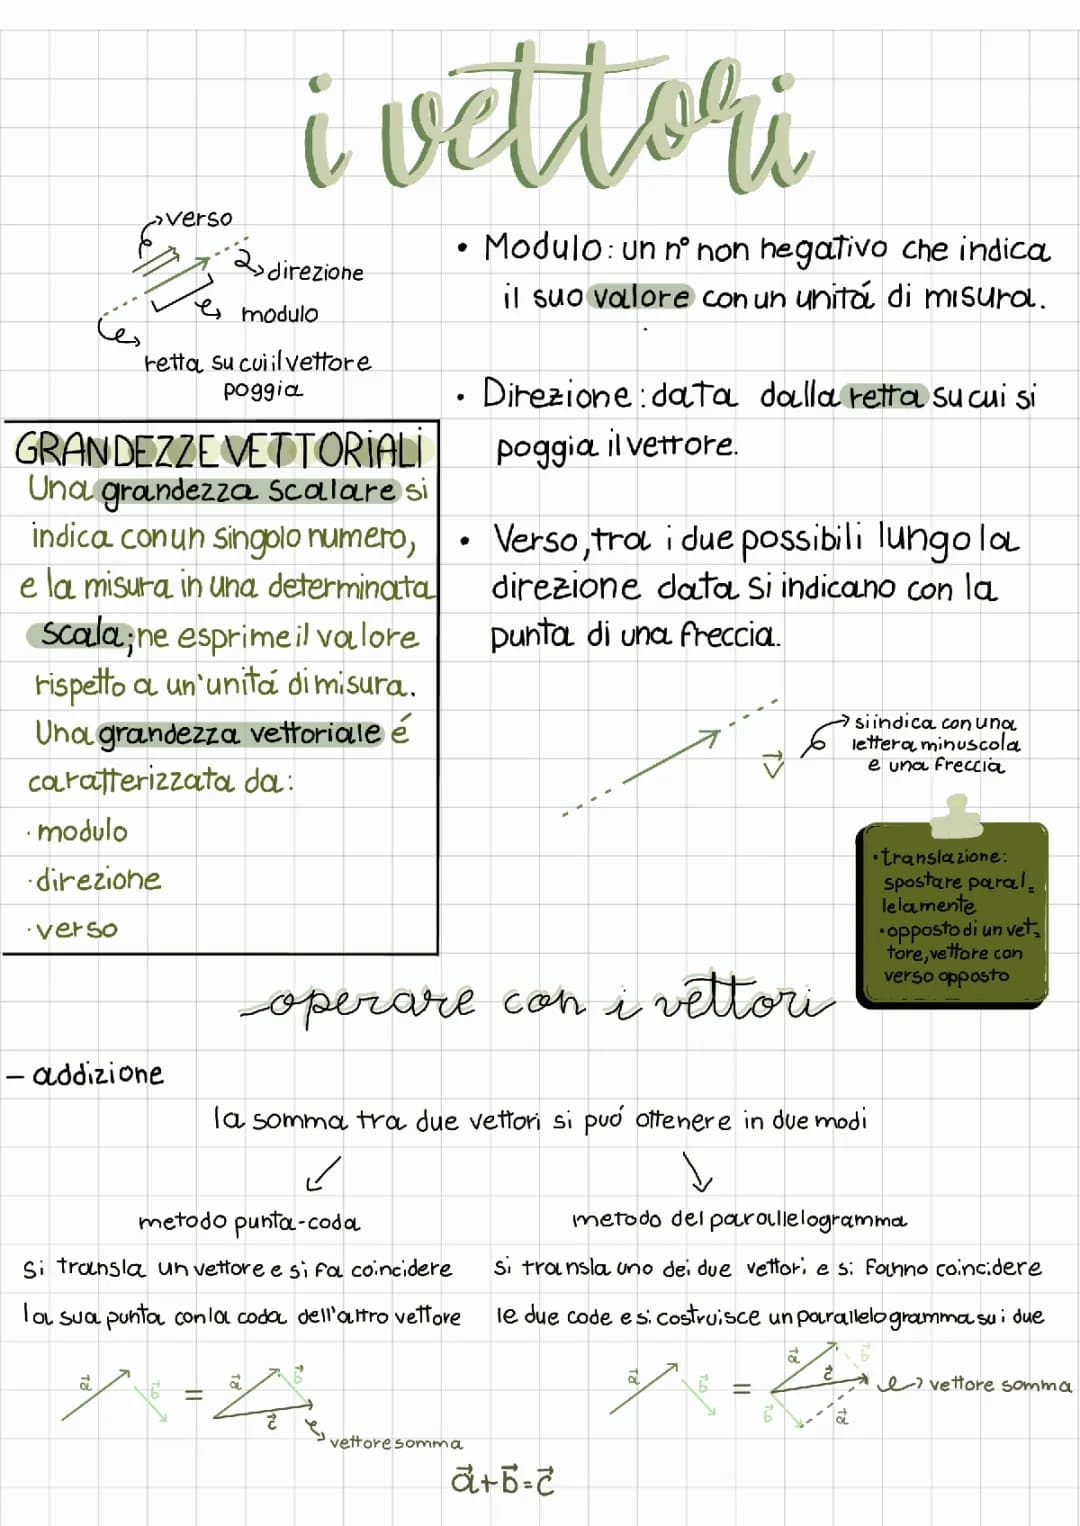 i vettori
verso
direzione
modulo
retta su cui il vettore
poggia
• Modulo: un n° non negativo che indica
il suo valore con un unitá di misura.
• Direzione: data dalla retta su cui si
poggia il vettore.
• Verso, tra i due possibili lungo la
direzione data si indicano con la
punta di una freccia.
GRANDEZZE VETTORIALI
Una grandezza scalare si
indica con un singolo numero,
e la misura in una determinata
scala; ne esprime il valore
rispetto a un'unitá di misura.
Una grandezza vettoriale é
caratterizzata da:
· modulo
· direzione
· verso
v⃗
si indica con una
lettera minuscola
e una freccia
• translazione:
spostare paral=
lelamente
• opposto di un vet=
tore, vettore con
verso opposto
operare con i vettori
- addizione
la somma tra due vettori si puó ottenere in due modi
metodo punta-coda
si transla un vettore e si fa coincidere
la sua punta con la coda dell'altro vettore
a⃗ b⃗ = a⃗ b⃗ c⃗
vettore somma
metodo del parallelogramma
si transla uno dei due vettori e si fanno coincidere
le due code e si costruisce un parallelogramma su i due
a⃗ b⃗ = a⃗ b⃗ c⃗ b⃗ a⃗
vettore somma
a⃗+b⃗=c⃗